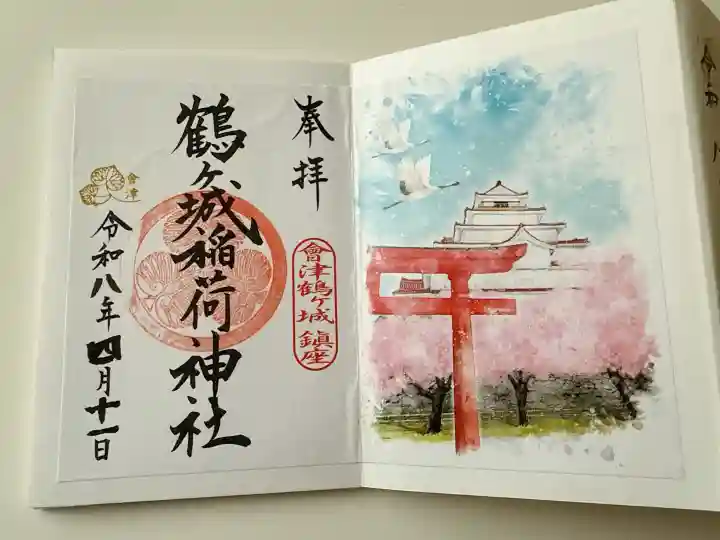 奉拝
會津鶴ヶ城鎮座
鶴ヶ城稲荷神社
會津
令和八年四月十一日
令和
月